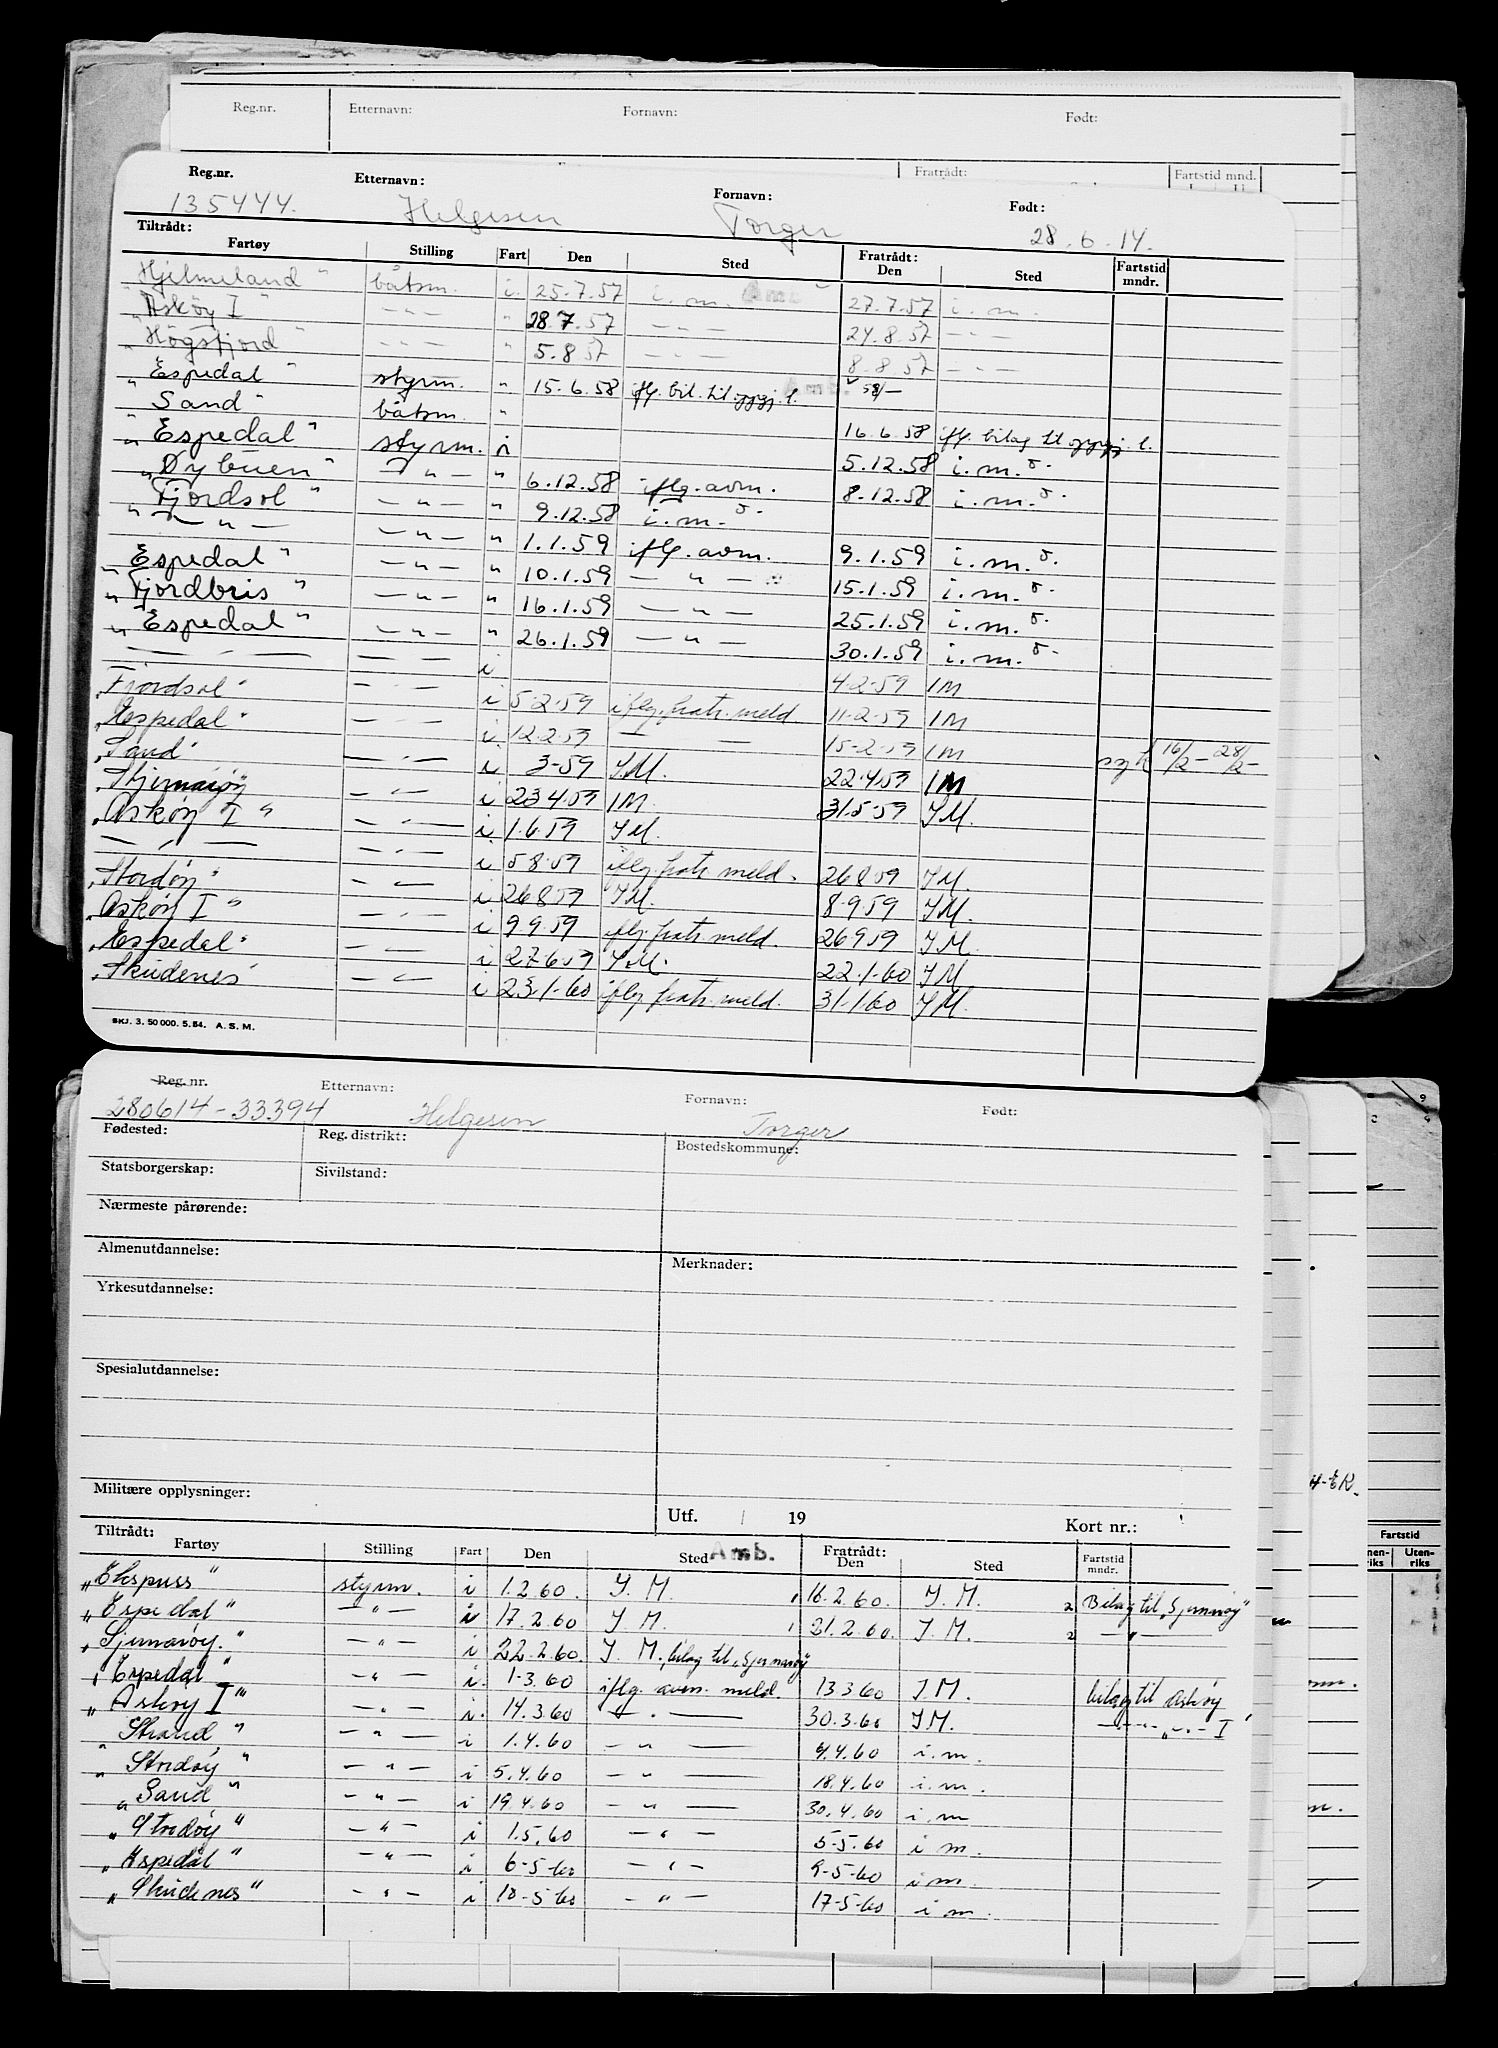 Reg.nr. Etternavn: Fornavn: Født:
Fratrådt: Fartstid mnd.
Reg.nr. Etternavn: Fornavn: Født:
135444. Helgesen Torger 28.6.14.
Tiltrådt: Fratrådt:
Fartøy Stilling Fart Den Sted Den Sted Fartstid mndr.
"Hjelmeland" båtsm. i. 25.7.57 i. m. Amb 27.7.57 i. m.
"Askøy I" -"- " 28.7.57 -"- 24.8.57 -"-
"Högsfjord" -"- " 5.8.57 -"- 8.8.57 -"-
"Espedal" styrm. " 15.6.58 iflg. bil. til oppgj. l. Amb. 58/-
"Sand" båtsm. " 16.6.58 iflg. bilag til oppgj. l.
"Espedal" styrm. i 5.12.58 i. m. ö.
"Øybuen" -"- " 6.12.58 iflg. avm. 8.12.58 i. m. ö.
"Fjordsol" -"- " 9.12.58 i. m. ö.
" -"- -"- " 1.1.59 iflg. avm. 9.1.59 i. m. ö.
"Espedal" -"- " 10.1.59 -"- 15.1.59 i. m. ö.
"Fjordbris" -"- " 16.1.59 -"- 25.1.59 i. m. ö.
"Espedal" -"- " 26.1.59 -"- 30.1.59 i. m. ö.
-"- -"- i 4.2.59 IM
"Fjordsol" -"- i 5.2.59 iflg. fratr. meld 11.2.59 IM
"Espedal" -"- i 12.2.59 - - 15-2.59 IM
"Sand" -"- i 3-59 I.M. 22.4.59 IM syk 16/2 - 28/2 -
"Sjernarøy -"- i 23 4.59 IM 31.5.59 I.M.
"Askøy I" -"- i 1.6.59 I.M.
-"- -"- i 5.8.59 iflg. fratr. meld. 26.8.59 I.M.
"Stordøy" -"- i 26.8.59 I.M. 8.9.59 I.M.
"Askøy I" -"- i 9.9.59 iflg. fratr. meld. 26.9.59 I.M.
"Espedal" -"- i 27.6.59 I.M. 22.1.60 I.M
"Skudenes" -"- i 23.1.60 iflg. fratr. meld. 31.1.60 I.M.
SKJ. 3. 50 000. 5. 54. A. S. M.
Reg. nr. Etternavn: Fornavn: Født:
280614-33394 Helgesen Torger
Fødested: Reg. distrikt: Bostedskommune:
Statsborgerskap: Sivilstand:
Nærmeste pårørende:
Almenutdannelse: Merknader:
Yrkesutdannelse:
Spesialutdannelse:
Militære opplysninger:
Utf. / 19 Kort nr.:
Tiltrådt: Fratrådt:
Fartøy Stilling Fart Den Sted Amb. Den Sted Fartstid mndr.
"Ekspress" styrm. i 1.2.60. I. M. 16.2.60. I. M. 2 Bilag til "Sjernarøy"
"Espedal" -"- i 17.2.60 I M. 21.2.60. I. M. 2 -"-
"Sjernarøy." -"- i 22.2.60. I. M., bilag til "Sjernarøy"
"Espedal" -"- i. 1-3.60 iflg. avm. meld. 13.3.60 I.M. bilag til Askøy
"Askøy I" -"- i. 14.3.60 -"- 30.3.60 I.M. -"- I
"Strand" -"- i 1.4.60 -"- 4.4.60 i. m.
"Stordøy" -"- i 5.4.60 -"- 18.4.60 i. m.
"Sand" -"- i 19.4.60 -"- 30.4.60 i. m
"Stordøy" -"- i 1.5.60 -"- 5-5.60 i m.
"Espedal" -"- i 6-5-60 -"- 9-5-60 i m.
"Skudenes" -"- i 10-5-60 -"- 17-5-60 i m.
Fartstid
Uten-riks